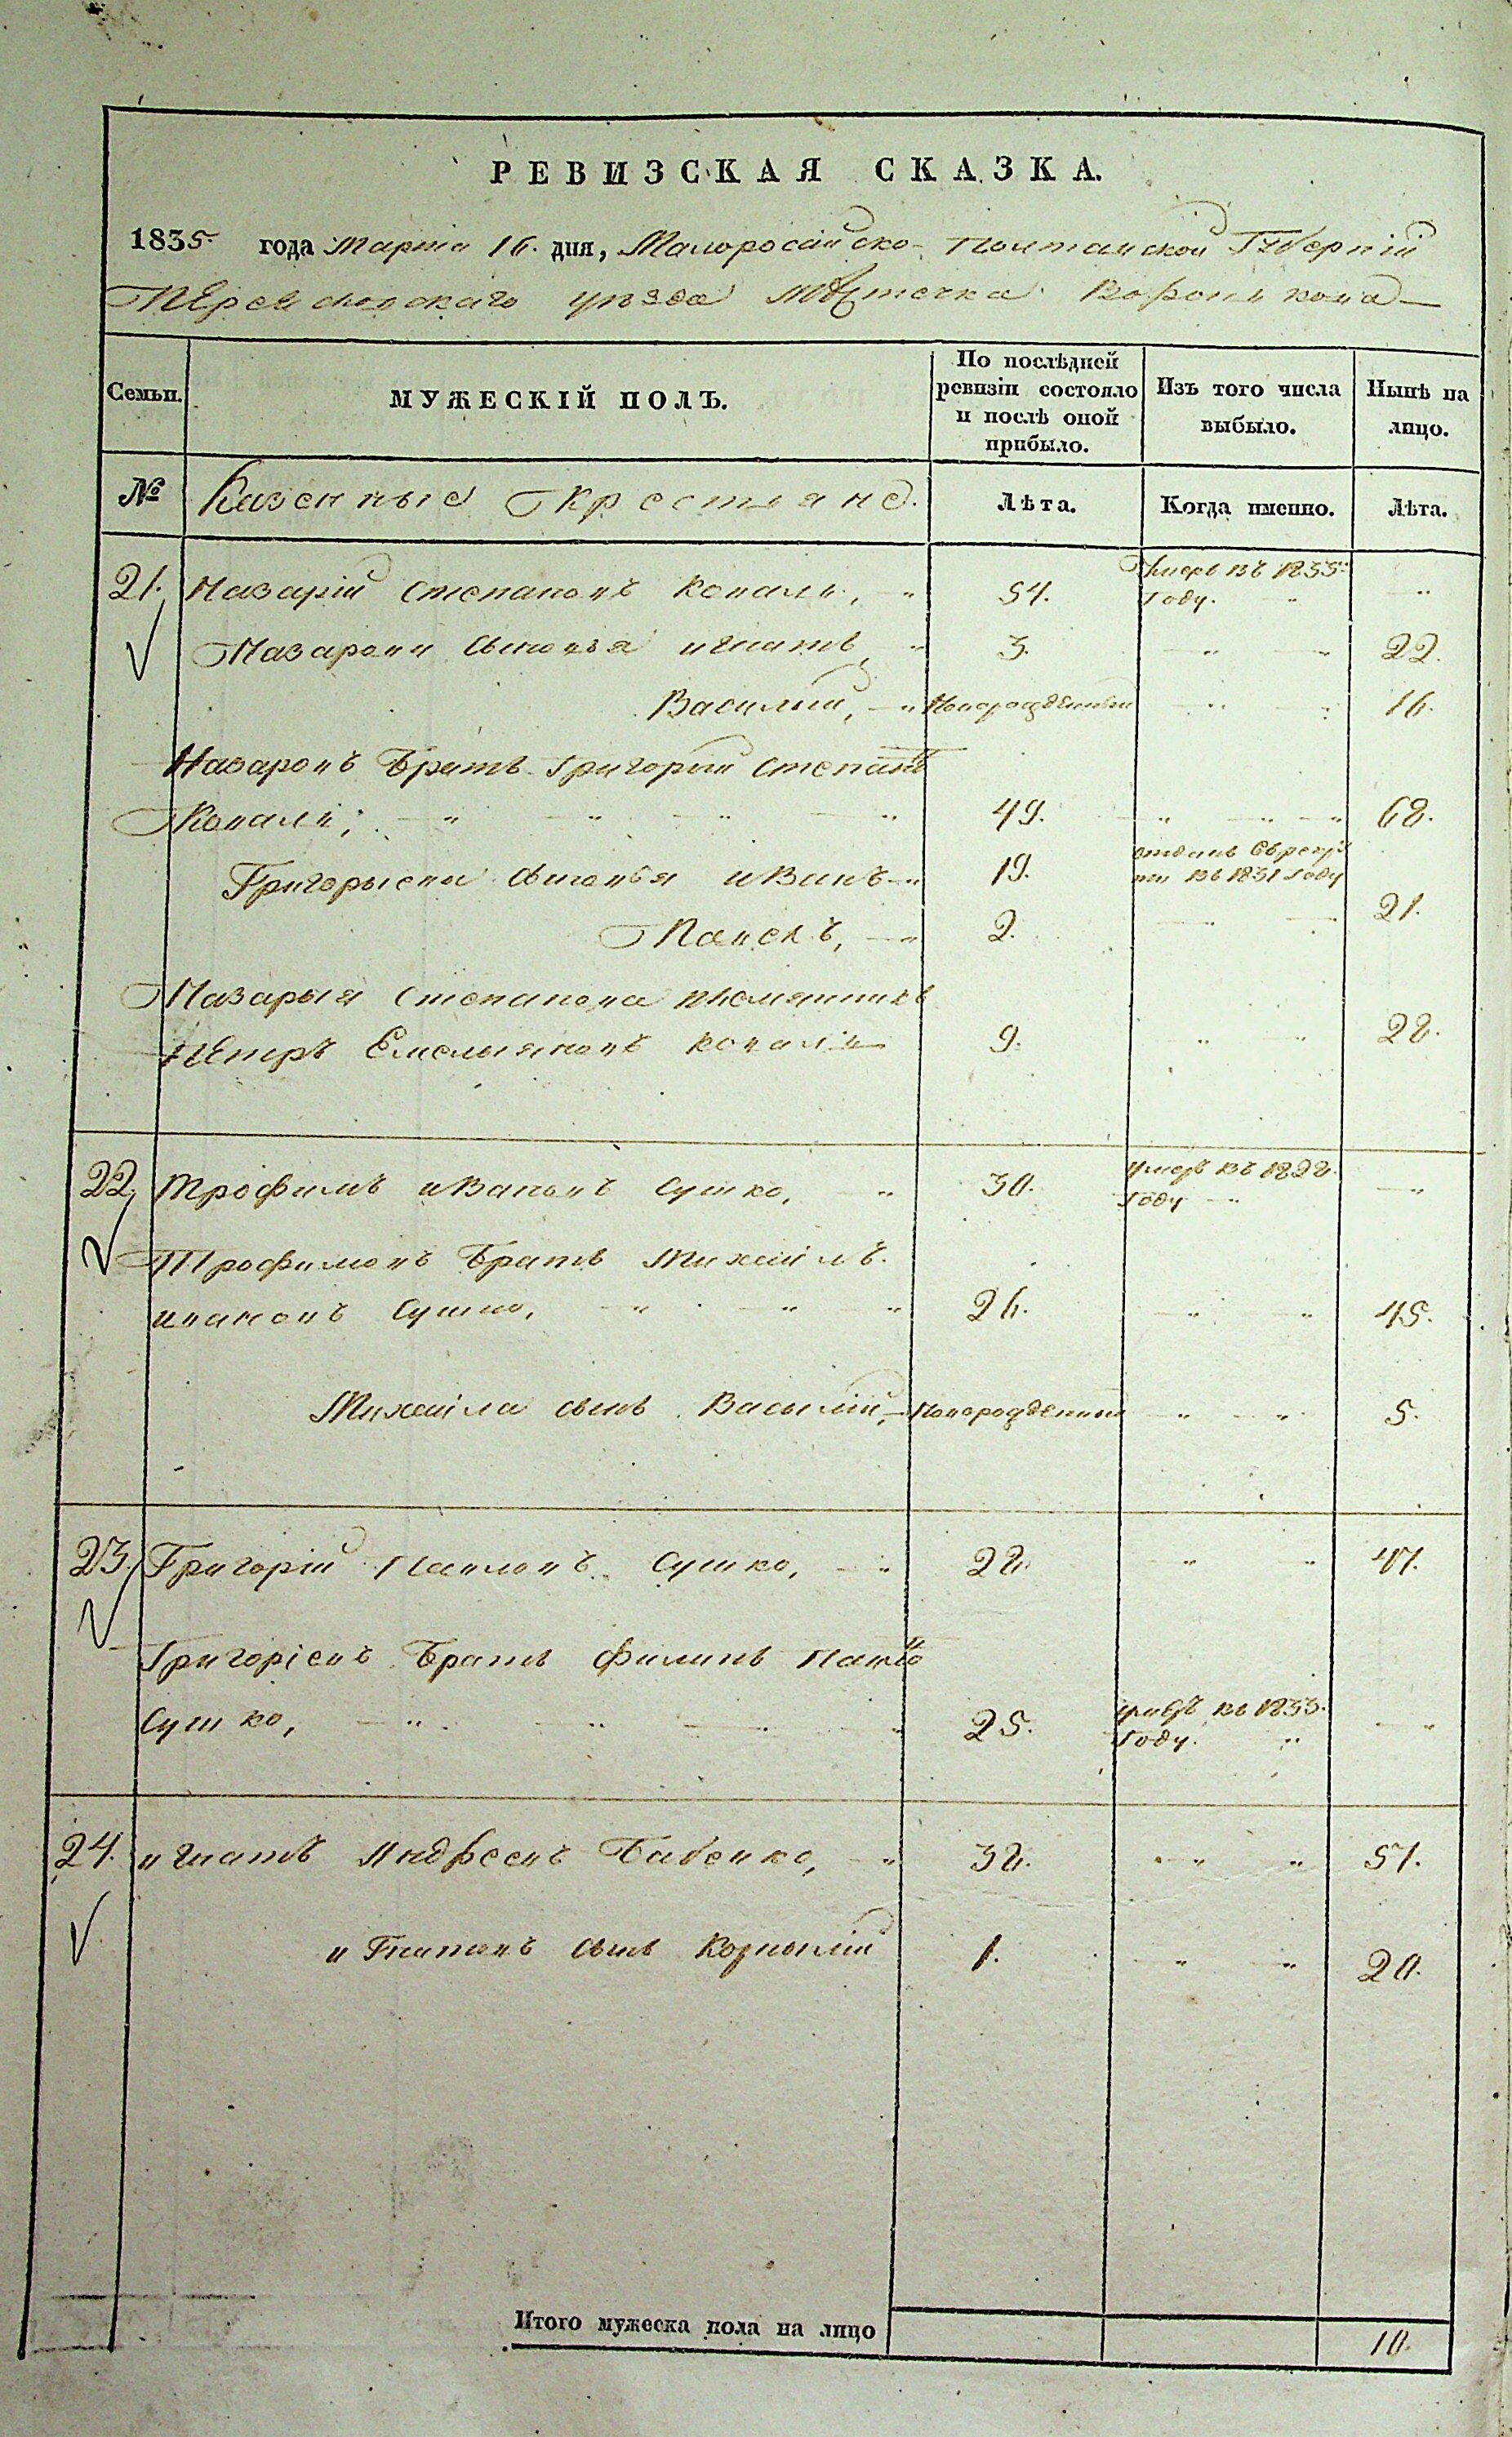 РЕВИЗСКАЯ СКАЗКА.
1835. года Марта 16. дня, Малоросійско-Полтавской Губерніи
Переяславскаго уѣзда Мѣстечка Воронкова
Семьи. МУЖЕСКІЙ ПОЛЪ. По послѣдней ревизіи состояло и послѣ оной прибыло. Изъ того числа выбыло. Нынѣ на лицо.
№ Казенные Крестьяне. Лѣта. Когда именно. Лѣта.
21. Назарій Степановъ Коваль, 54. Умеръ въ 1833 Году.
Назаровы сыновья игнатъ, 3. 22.
Василій, Новорожденный 16.
Назаровъ Братъ Григорій Степановъ
Коваль, 49. 68.
Григорьева сыновья иванъ 19. отданъ въ рекруты въ 1831 Году
Павелъ, 2. 21.
Назарыя Степанова племянникъ
Петръ Емельяновъ Коваль 9. 28.
22. Трофимъ ивановъ Сушко, 30. умеръ въ 1828. Году
Трофимовъ Братъ Михаилъ
ивановъ Сушко, 26. 45.
Михаила сынъ Василій, Новорожденный 5.
23. Григорій Павловъ Сушко, 28. 47.
Григоріевъ Братъ Филипъ Павловъ
Сушко, 25. умеръ въ 1833. Году.
24. игнатъ Андреевъ Бабенко, 32. 51.
игнатовъ сынъ Корнилій 1. 20.
Итого мужеска пола на лицо 10.